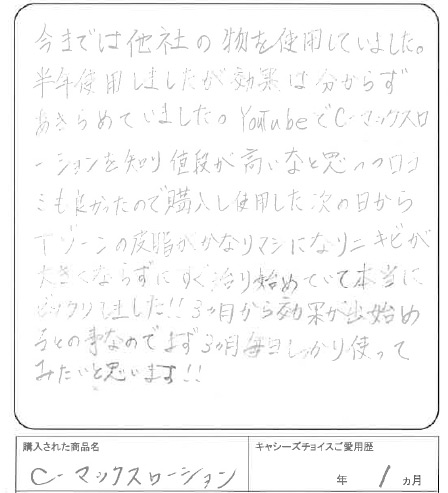 今までは他社の物を使用していました。
半年使用しましたが効果は分からず
あきらめていました。YouTubeでC-マックスロ
ーションを知り値段が高いなと思いつつ口コ
ミも良かったので購入し使用した次の日から
Tゾーンの皮脂がかなりマシになりニキビが
大きくならずにすぐ治り始めていて本当に
ビックリしました!!3ヶ月から効果が出始め
るとの事なのでまず3ヶ月毎日しっかり使って
みたいと思います!!
購入された商品名
キャシーズチョイスご愛用歴
C-マックスローション
年 1 ヵ月